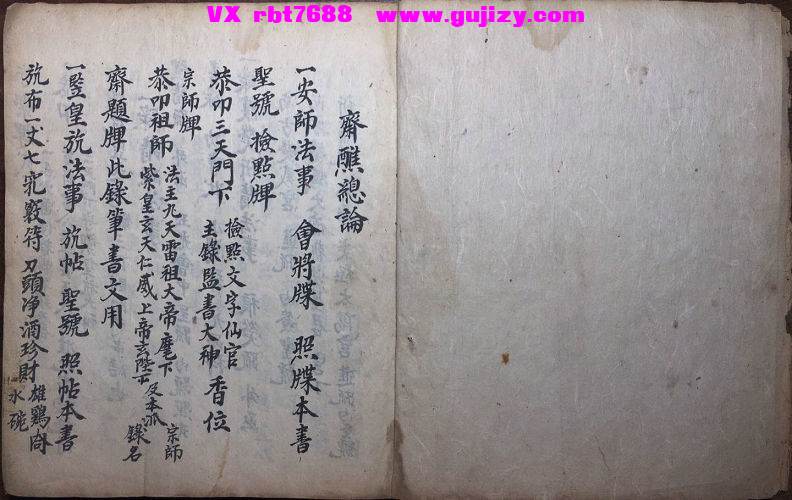 VX rbt7688 www.gujizy.com
齋醮總論
一安師法事 會將牒 照牒本書
聖號 撿點牌
恭叩三天門下 撿點文字仙官 主錄監書大神 香位
宗師牌
恭叩祖師 法主九天雷祖大帝麾下 紫皇玄天仁威上帝玄陛下 及本派宗師錄名
齋題牌此錄筆書文用
一竪皇旂法事 旂帖 聖號 照帖本書
旂布一丈七 竅符 刀頭净酒珍財 雄鷄 水碗